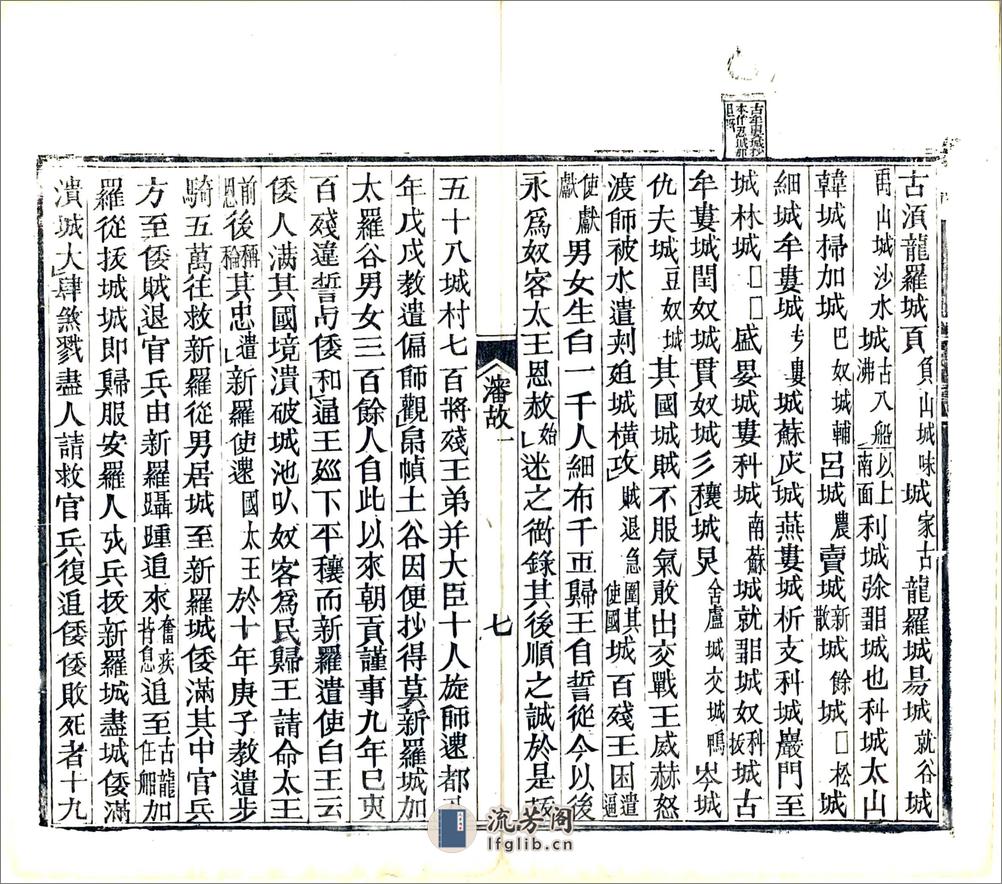 古牟婁城抄
古須龍羅城頁負山城味城家古龍羅城易城就谷城
禹山城沙水城古八船沸以上南面利城弥鄒城也科城太山
韓城掃加城巴奴城輔呂城農賣城新散城餘城□松城
細城牟婁城婁城蘇灰城燕婁城析支科城巖門至
城林城□□盛晏城婁科城南蘇城就鄒城奴科拔城古
牟婁城閏奴城貫奴城彡穰城炅舍盧城交城鴨岑城
仇夫城豆奴城其國城賊不服氣敢出交戰王威赫怒
渡師被水遣刾廹城橫攻賊退急圍其使國城百殘王困遣逼
使獻獻男女生白一千人細布千帀歸王自誓從今以後
永爲奴客太王恩赦始迷之衜錄其後順之誠於是
五十八城村七百將殘王弟并大臣十人旋師還都
年戊戌教遣偏師觀帛幀土谷因便抄得莫新羅城加
太羅谷男女三百餘人自此以來朝貢謹事九年巳亥
百殘違誓与倭和通王廵下平穰而新羅遣使白王云
倭人滿其國境潰破城池㕥奴客爲民歸王請命太王
前恩後稱其忠遣新羅使還國太王於十年庚子教遣步
騎五萬往救新羅從男居城至新羅城倭滿其中官兵
方至倭賊退官兵由新羅躡踵追來奮疾背息追至古龍任船加
羅從拔城城即歸服安羅人戍兵拔新羅城盡城倭滿
潰城大肆煞戮盡人請救官兵復追倭倭敗死者十九
瀋故一
七
流芳阁
lfglib.cn